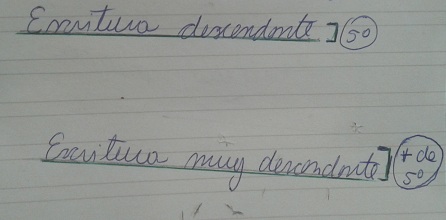 Escritura descendente ] 5º
Escritura muy descendente ] + de
5º